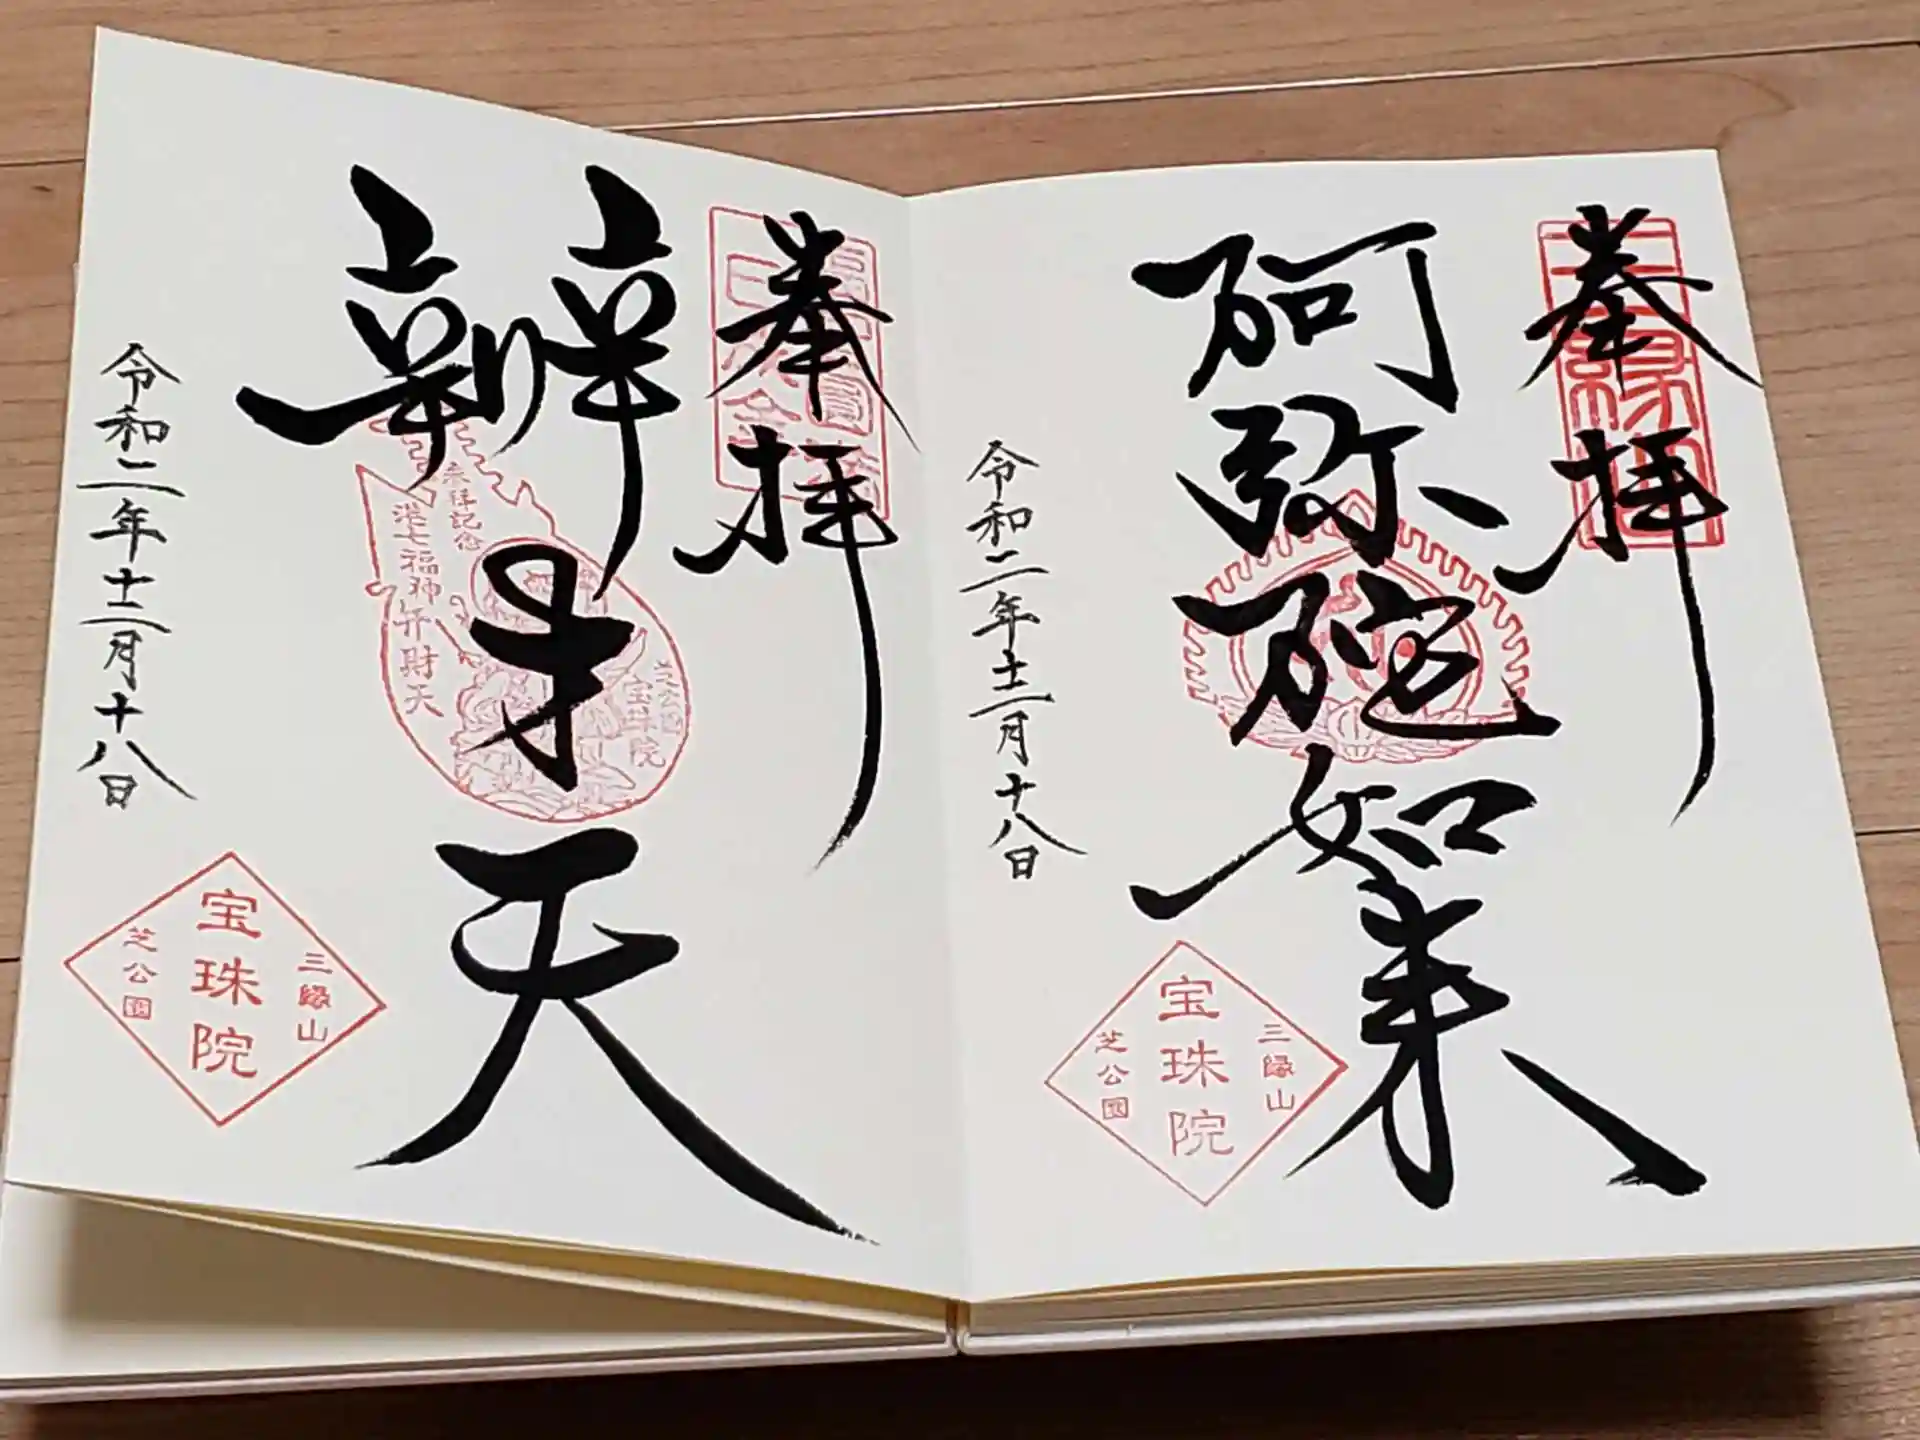 奉拝
三縁山
阿弥陀如来
令和二年十二月十八日
三縁山
宝珠院
芝公園
奉拝
辨才天
参拝記念
港七福神弁財天
芝公園
宝珠院
令和二年十二月十八日
三縁山
宝珠院
芝公園